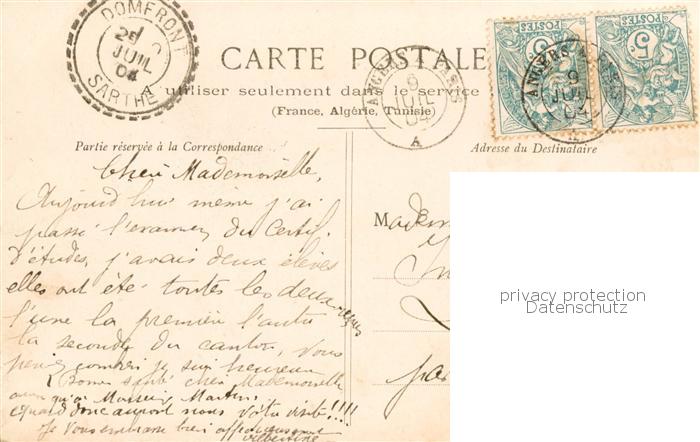 DOMFRONT
JUIL
04
SARTHE
CARTE POSTALE
A utiliser seulement dans le service
(France, Algérie, Tunisie)
ANGERS PARIS
9
JUIL
04
A
ANGERS
9
JUIL
04
POSTES
5
POSTES
5
Partie réservée à la Correspondance
Adresse du Destinataire
Chère Mademoiselle,
Aujourd'hui même j'ai
passé l'examen du Certif.
d'études, j'avais deux élèves
elles ont été toutes les deux reçues
l'une la première l'autre
la seconde du canton, Vous
pensez combien je suis heureuse
Bonne santé chère Mademoiselle
ainsi qu'à Monsieur Martin
Quand donc aurons nous votre visite!!!!
Je vous embrasse bien affectueusement
M
par
privacy protection
Datenschutz